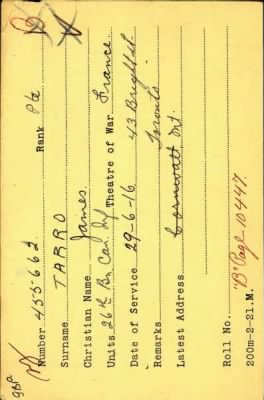 Number 455662 Rank Pte
Surname TARRO
Christian Name James
Units 26th Bn Can. Inf Theatre of War France
Date of Service 29-6-16
Remarks Toronto
Latest Address Cornwall, Ont.
Roll No. "B" Page 10447.
200m-2-21.M.